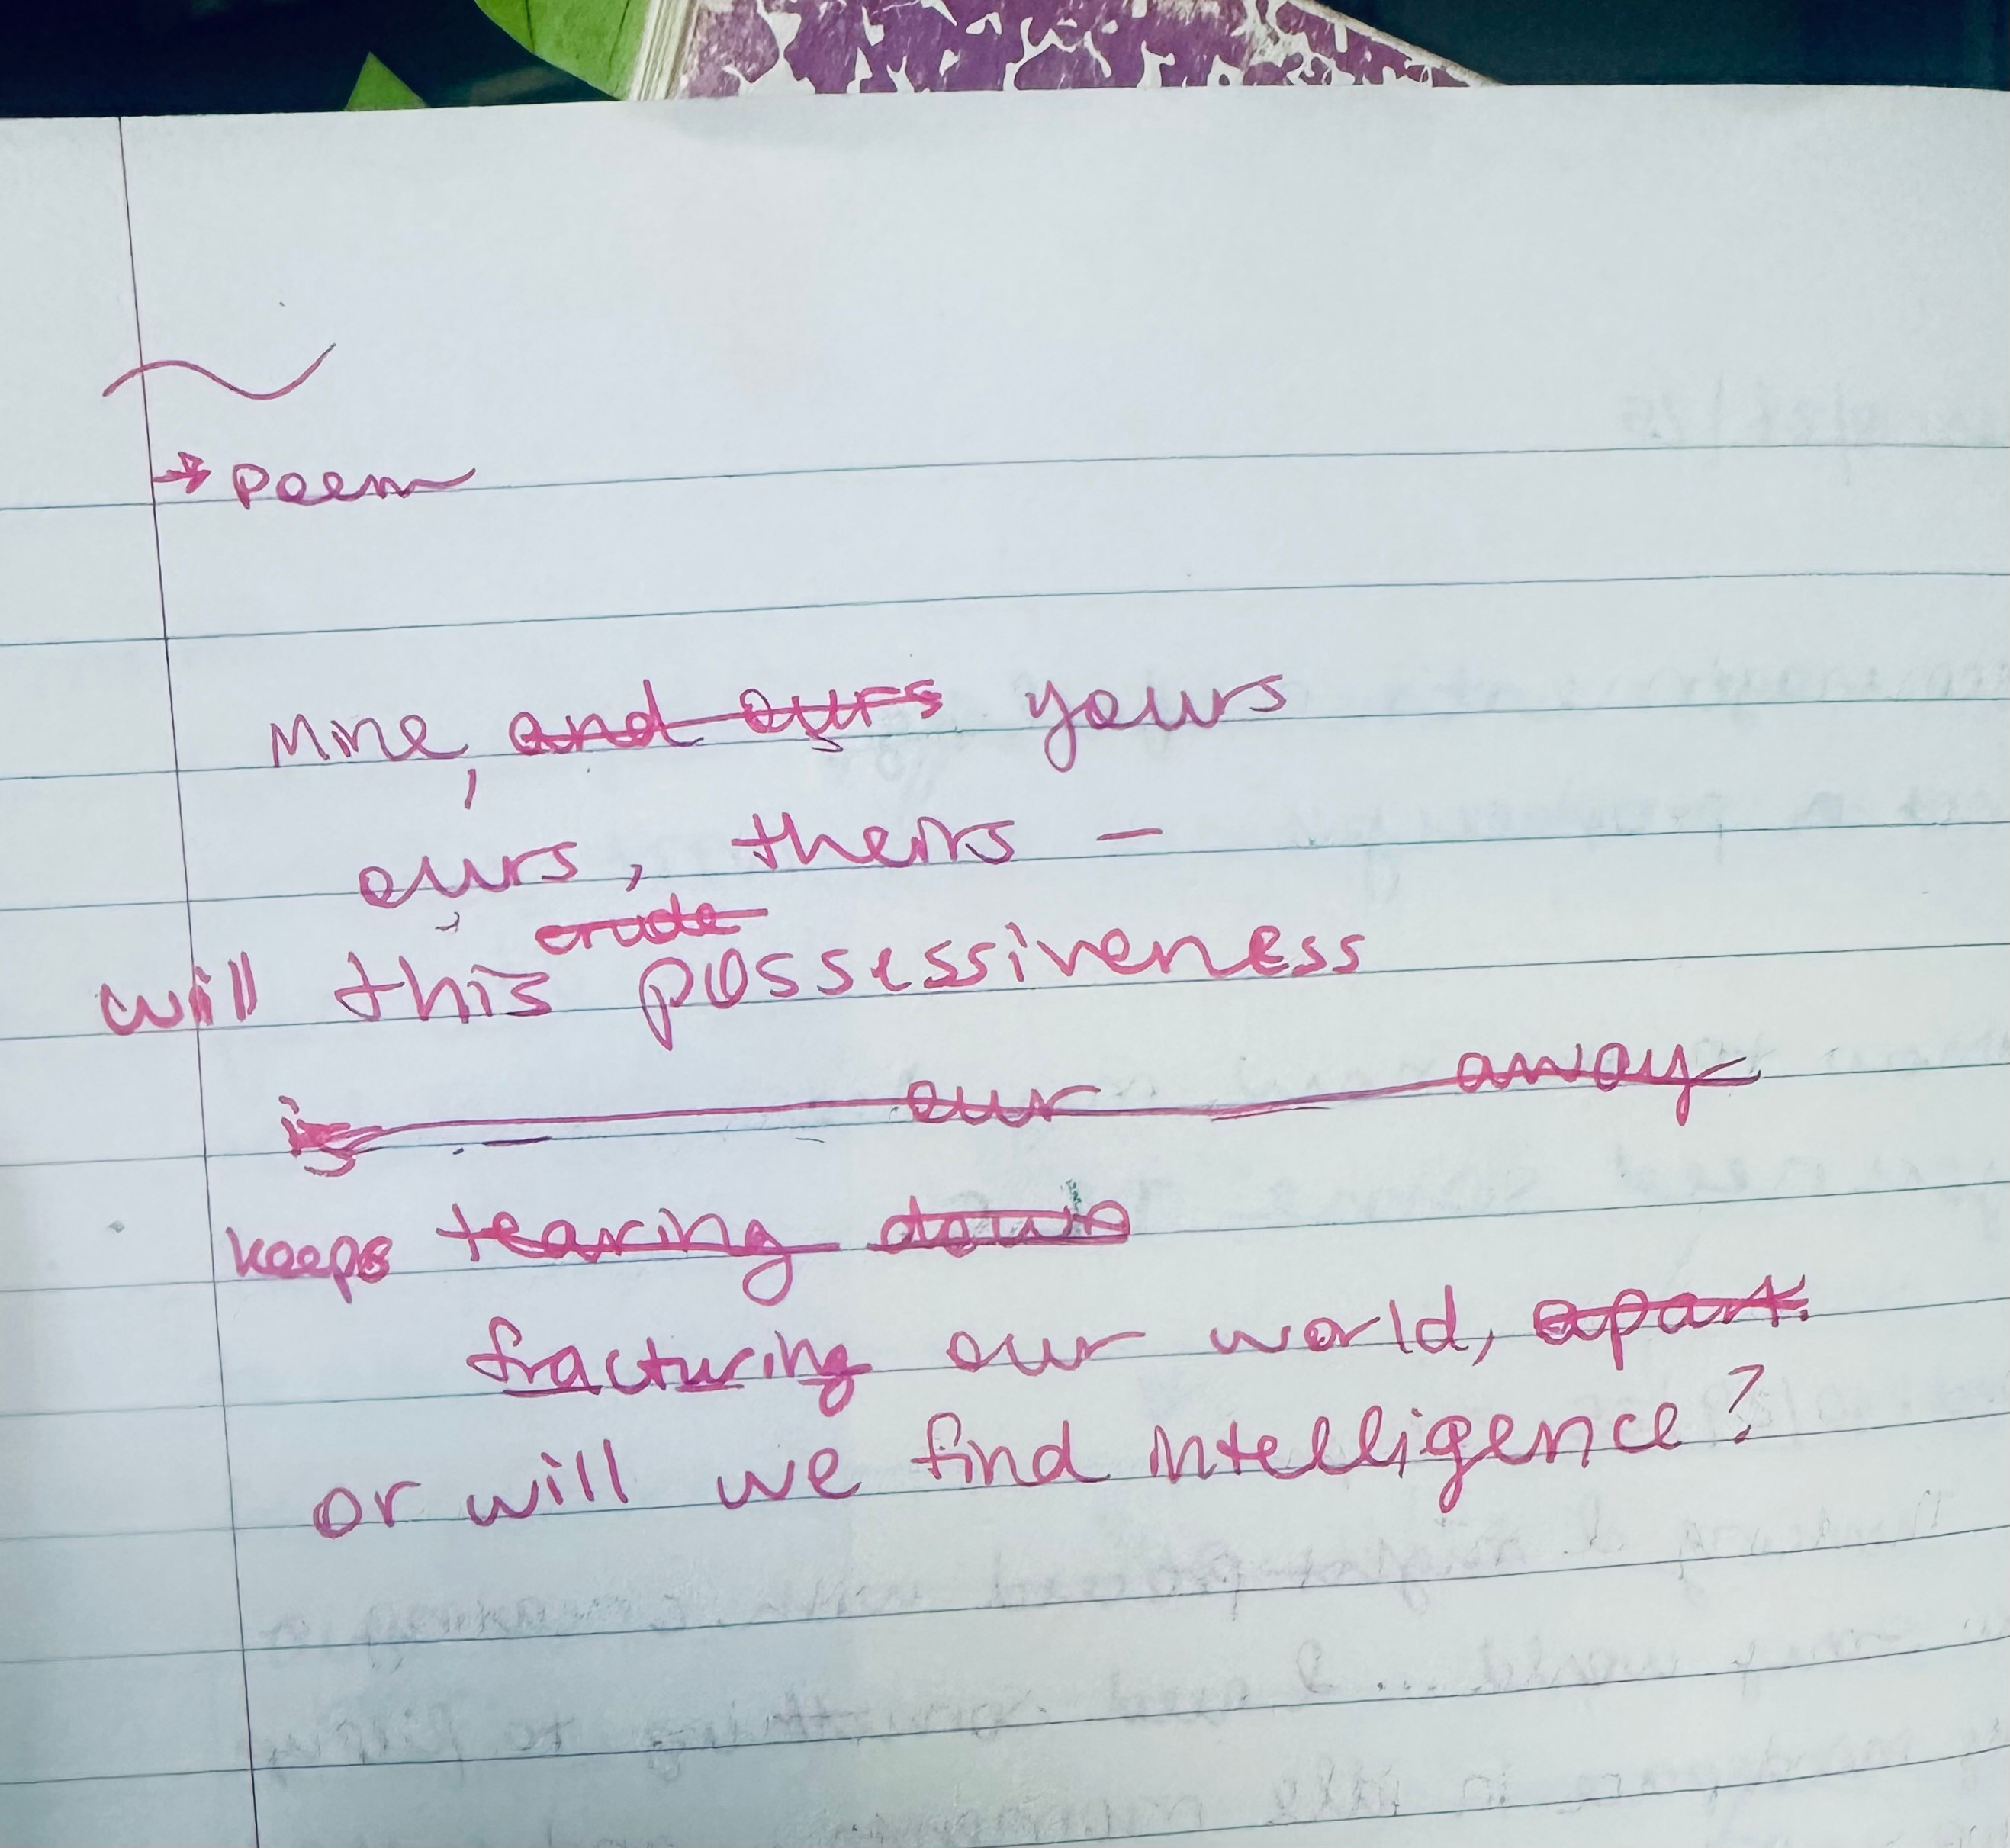 → Poem
Mine, and ours yours
ours, theirs –
crude
will this possessiveness
is our away
keeps tearing down
fracturing our world, apart.
or will we find intelligence?